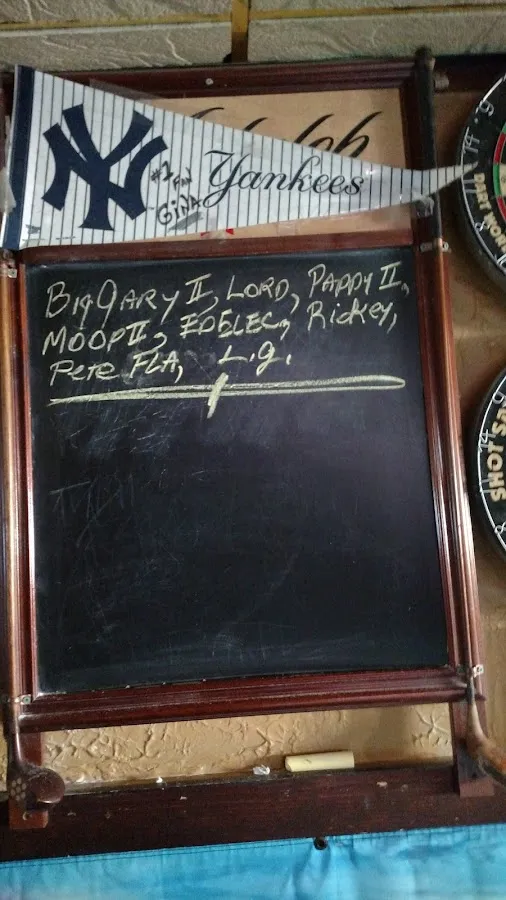 NY
#1
FAN
GiNA
Yankees
Big GARY II, LORD, PAPPY II,
MOOP II, EDELEC, Rickey,
Pete FLA, L.g.
9
14
DART WORLD
9
14
SHOT